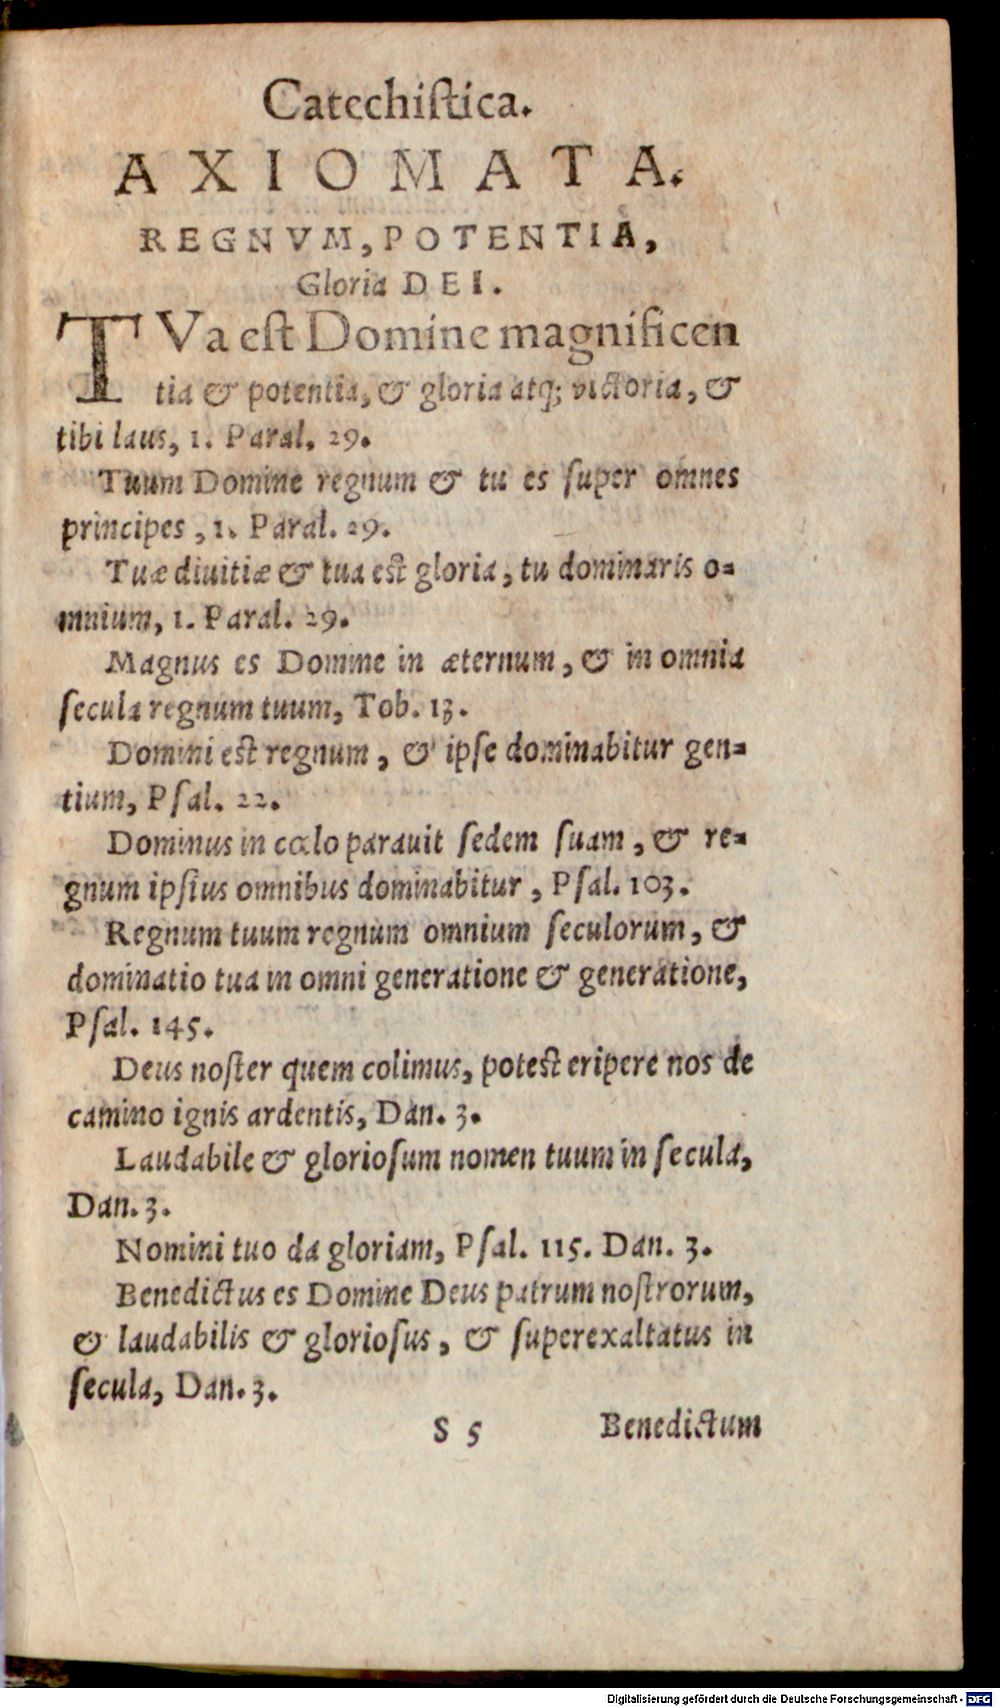 Catechiſtica.
AXIOMATA.
REGNVM, POTENTIA,
Gloria DEI.
TVa eſt Domine magnificen
tia & potentia, & gloria atq; victoria, &
tibi laus, 1. Paral. 29.
Tuum Domine regnum & tu es ſuper omnes
principes, 1. Paral. 29.
Tuæ diuitiæ & tua eſt gloria, tu dominaris o-
mnium, 1. Paral. 29.
Magnus es Domine in æternum, & in omnia
ſecula regnum tuum, Tob. 13.
Domini eſt regnum, & ipſe dominabitur gen-
tium, Pſal. 22.
Dominus in cœlo parauit ſedem ſuam, & re-
gnum ipſius omnibus dominabitur, Pſal. 103.
Regnum tuum regnum omnium ſeculorum, &
dominatio tua in omni generatione & generatione,
Pſal. 145.
Deus noſter quem colimus, poteſt eripere nos de
camino ignis ardentis, Dan. 3.
Laudabile & glorioſum nomen tuum in ſecula,
Dan. 3.
Nomini tuo da gloriam, Pſal. 115. Dan. 3.
Benedictus es Domine Deus patrum noſtrorum,
& laudabilis & glorioſus, & ſuperexaltatus in
ſecula, Dan. 3.
S 5 Benedictum
Digitalisierung gefördert durch die Deutsche Forschungsgemeinschaft - DFG